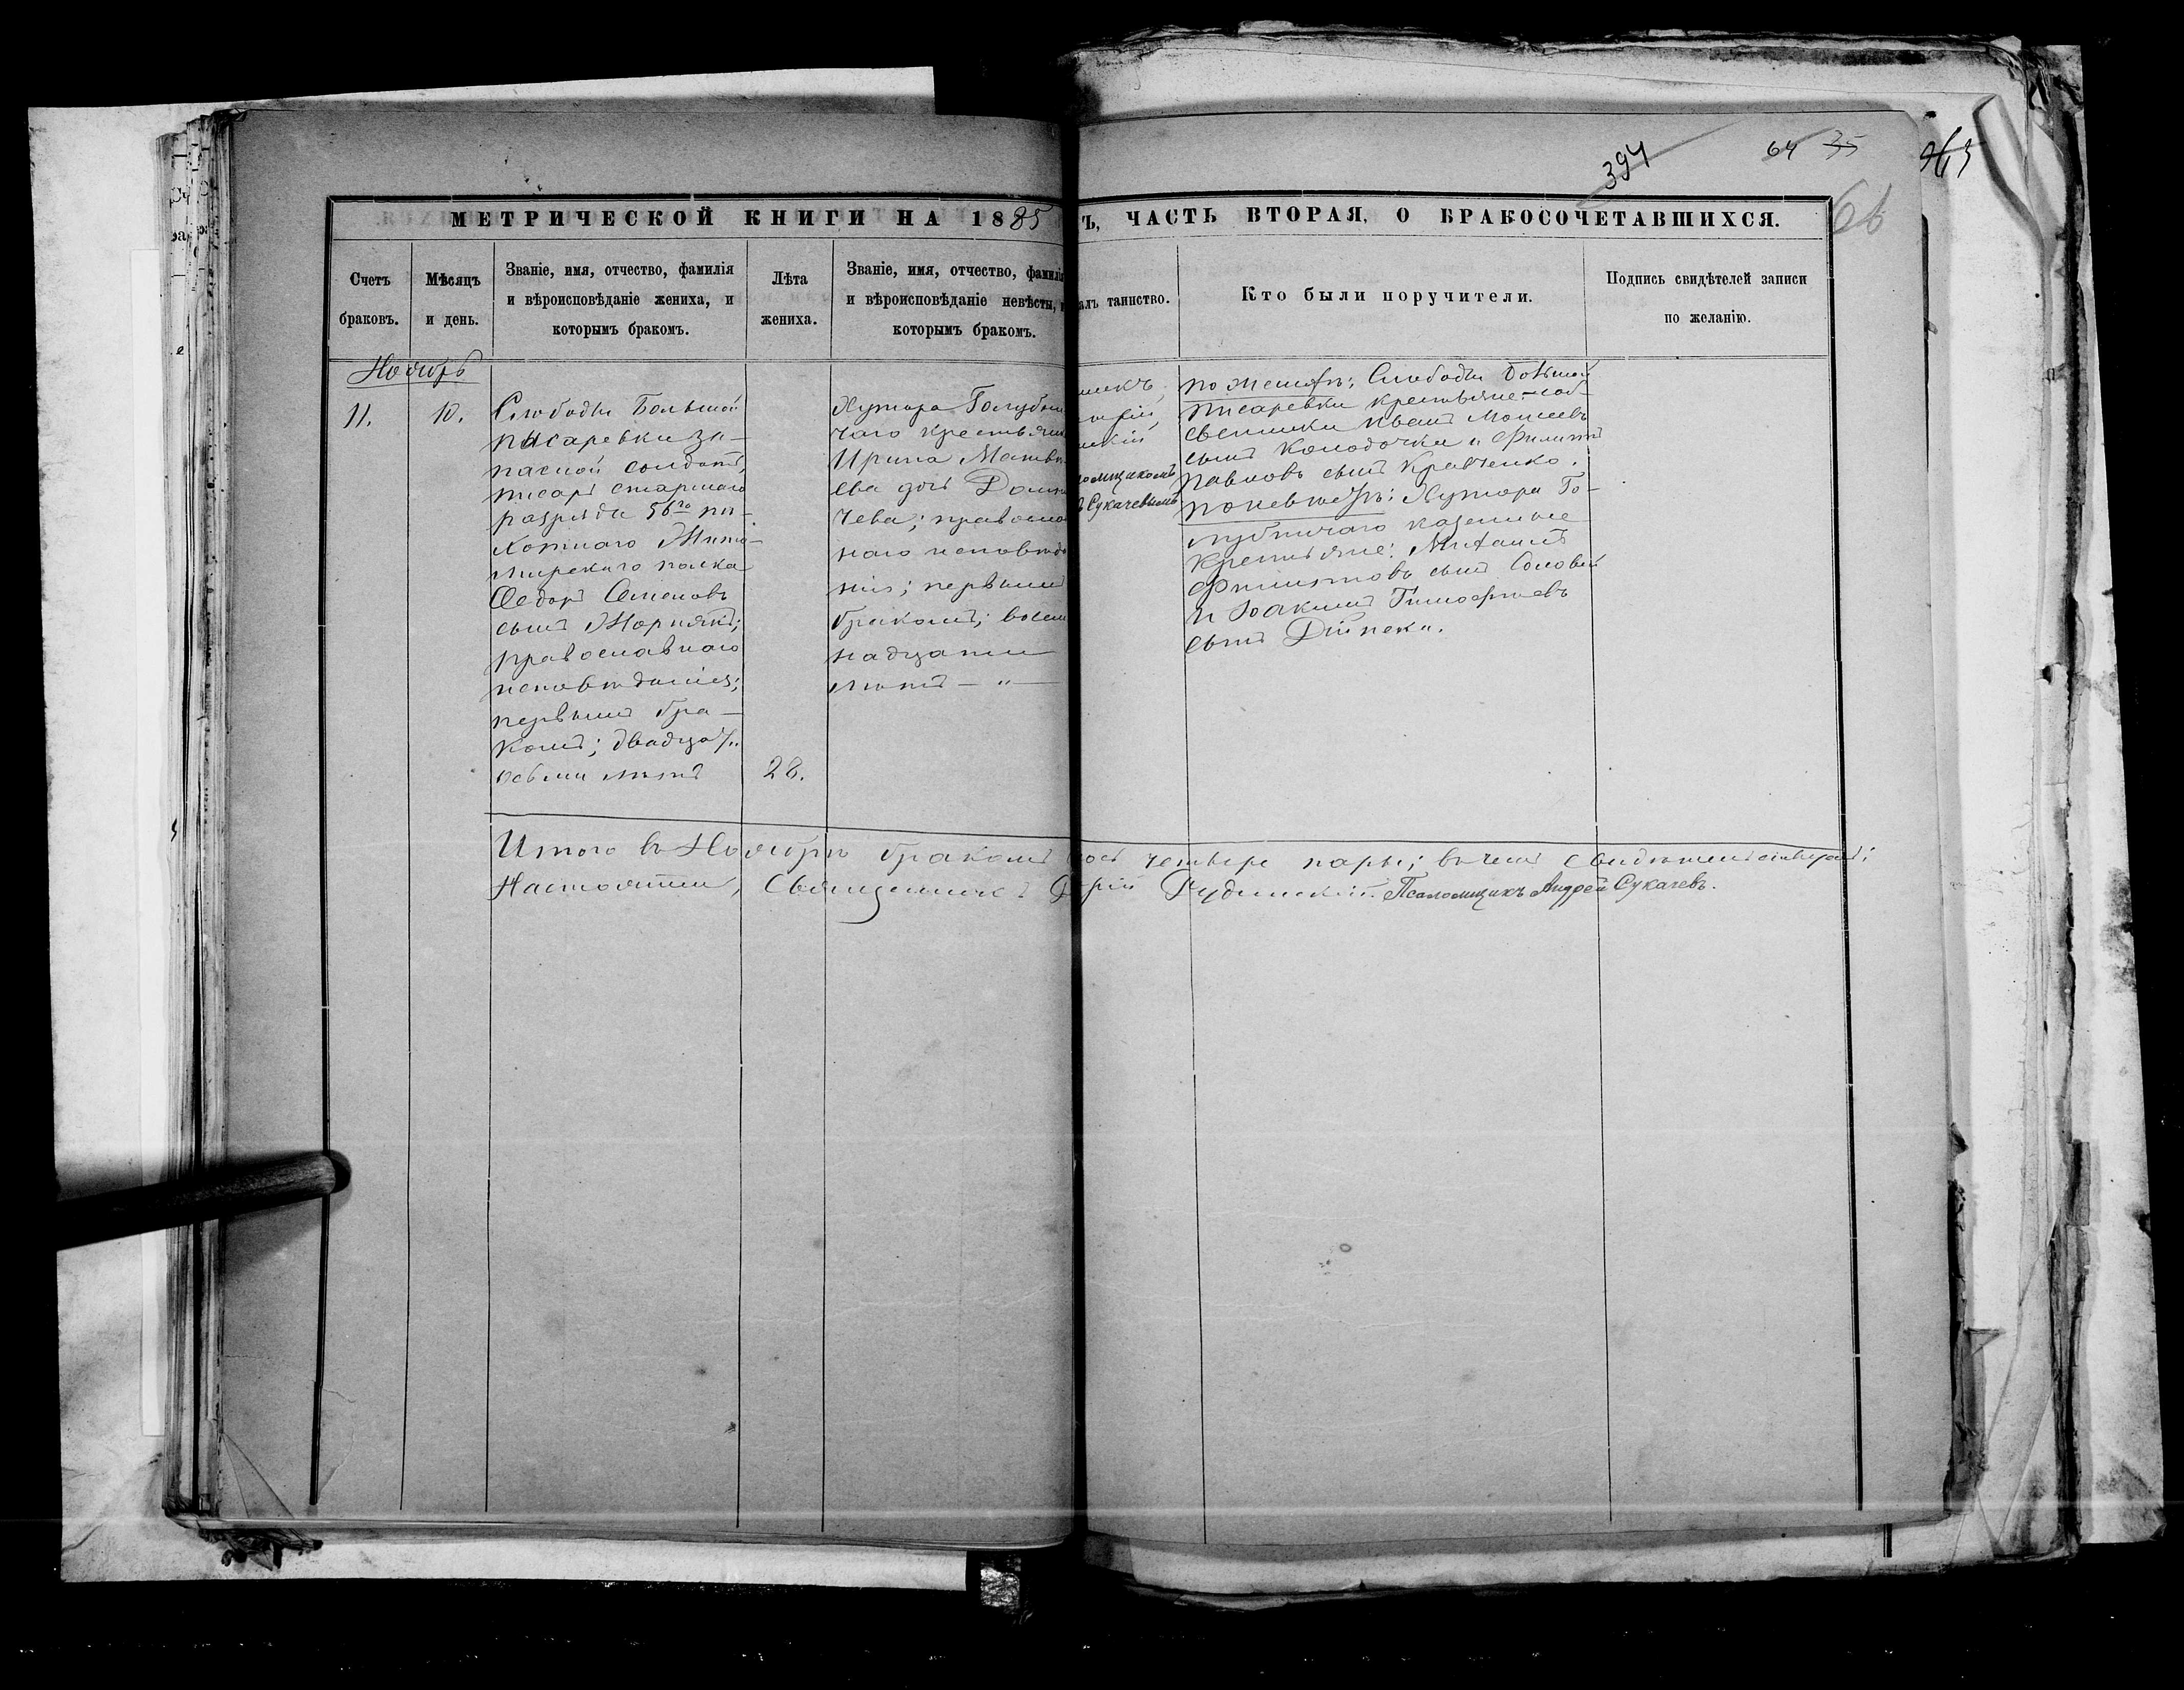 394
64 35
66
МЕТРИЧЕСКОЙ КНИГИ НА 1885
Ъ, ЧАСТЬ ВТОРАЯ, О БРАКОСОЧЕТАВШИХСЯ.
Счетъ
браковъ.
Мѣсяцъ
и день.
Званіе, имя, отчество, фамилія
и вѣроисповѣданіе жениха, и
которымъ бракомъ.
Лѣта
жениха.
Званіе, имя, отчество, фамилія
и вѣроисповѣданіе невѣсты, и
которымъ бракомъ.
алъ таинство.
Кто были поручители.
Подпись свидѣтелей записи
по желанію.
Ноябрь
11.
10.
Слободы Большой
Писаревки за-
пасной солдатъ,
писарь старшаго
разряда 56го пѣ-
хотнаго Жито-
мирскаго полка
Ѳедоръ Семеновъ
сынъ Жорнякъ;
православнаго
исповѣданія;
первымъ бра-
комъ; двадцати
осьми лѣтъ
28.
Хутора Голубни
чаго крестьян
Ирина Матвѣ
ева дочь
чева; правосла
наго исповѣда
нія; первымъ
бракомъ; восем
надцати
лѣтъ — " —
никъ,
рій
скій
ломщикомъ
Сукачевымъ
по женихѣ: Слободы Большой
Писаревки крестьяне-соб-
ственники Иванъ Моисеевъ
сынъ Колодочка и Филиппъ
Павловъ сынъ Кравченко.
по невѣстѣ: Хутора Го-
лубничаго казенные
крестьяне: Михаилъ
Филипповъ сынъ Соловей
и Іоакимъ Тимофѣевъ
сынъ
Итого въ Ноябрѣ бракомъ соч четыре пары; въ чемъ свидѣтельствуютъ:
Настоятель, Священникъ рій Рудинскій. Псаломщикъ Андрей Сукачевъ.